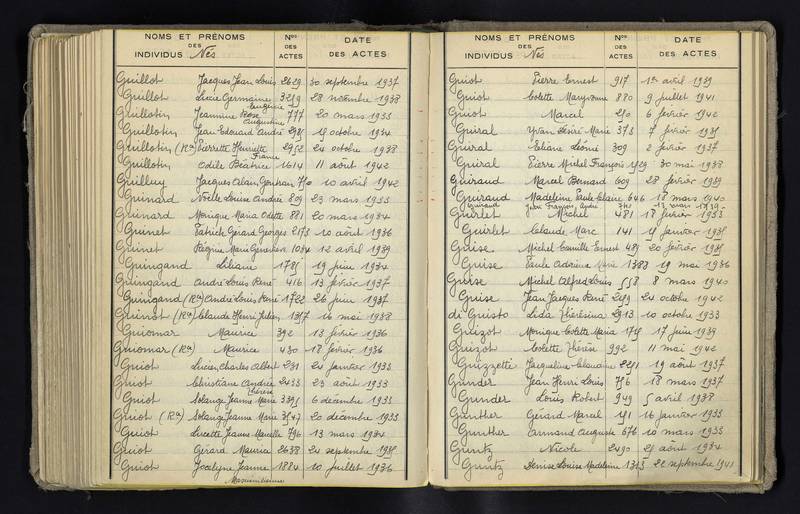 NOMS ET PRÉNOMS DES INDIVIDUS Nés Nos DES ACTES DATE DES ACTES
Guillot Jacques Jean Louis 2629 30 septembre 1937
Guillot Lucie Germaine 3219 28 novembre 1938
Guillotin Jeannine Rose Augustine 777 20 mars 1933
Guillotin Jean Edouard André 15 octobre 1934
Guillotin (Ra) Pierrette Henriette France 2952 24 octobre 1938
Guillotin Odile Béatrice 1614 11 août 1942
Guilluy Jacques Alain 10 avril 1942
Guinard Noelle Louise Andrée 809 23 mars 1933
Guinard Monique Marie Odette 881 20 mars 1934
Guinet Patrick Gérard Georges 2175 10 août 1936
Guinet Régine Marie Geneviève 1034 12 avril 1939
Guingand Liliane 1785 19 juin 1934
Guingand André Louis René 416 13 février 1937
Guingand (Ra) André Louis René 1722 26 juin 1937
Guinot (Ra) Claude Henri Julien 16 mai 1938
Guiomar Maurice 392 13 février 1936
Guiomar (Ra) Maurice 430 18 février 1936
Guiot Lucien Charles Albert 231 24 janvier 1933
Guiot Christiane Andrée Thérèse 2433 23 août 1933
Guiot Solange Jeanne Marie 3395 6 décembre 1933
Guiot (Ra) Solange Jeanne Marie 3547 20 décembre 1933
Guiot Lucette Jeanne Marcelle 796 13 mars 1934
Guiot Gérard Maurice 2638 24 septembre 1935
Guiot Jocelyne Jeanne 1884 10 juillet 1936
Maximilienne
NOMS ET PRÉNOMS DES INDIVIDUS Nés Nos DES ACTES DATE DES ACTES
Guiot Pierre Ernest 917 1er avril 1939
Guiot Colette Maryvonne 880 9 juillet 1941
Guiot Marcel 210 6 février 1942
Guiral Yvan Henri Marie 373 7 février 1935
Guiral Eliane Léonie 309 2 février 1937
Guiral Pierre Michel François 1529 30 mai 1938
Guiraud Marcel Bernard 609 28 février 1939
Guiraud Madeleine Paule Claire 646 18 mars 1940
Guiraud Jean François André 13 mars 1939
Guirlet Michel 481 18 février 1933
Guirlet Claude Marc 141 15 janvier 1935
Guise Michel Camille Ernest 485 20 février 1935
Guise Paule Adrienne Marie 1383 19 mai 1936
Guise Michel Alfred Louis 558 8 mars 1940
Guise Jean Jacques René 2459 24 octobre 1942
di Guisto Lida Thérésina 2913 10 octobre 1933
Guizot Monique Colette Maria 1755 17 juin 1939
Guizot Colette Thérèse 992 11 mai 1942
Guizzetti Jacqueline 2251 19 août 1937
Gunder Jean Henri Louis 756 18 mars 1937
Gunder Louis Robert 949 5 avril 1938
Gunther Gérard Marcel 151 16 janvier 1933
Gunther Armand Auguste 676 10 mars 1933
Guntz Nicole 2490 25 août 1934
Guntz Denise Louise Madeleine 1323 22 septembre 1941